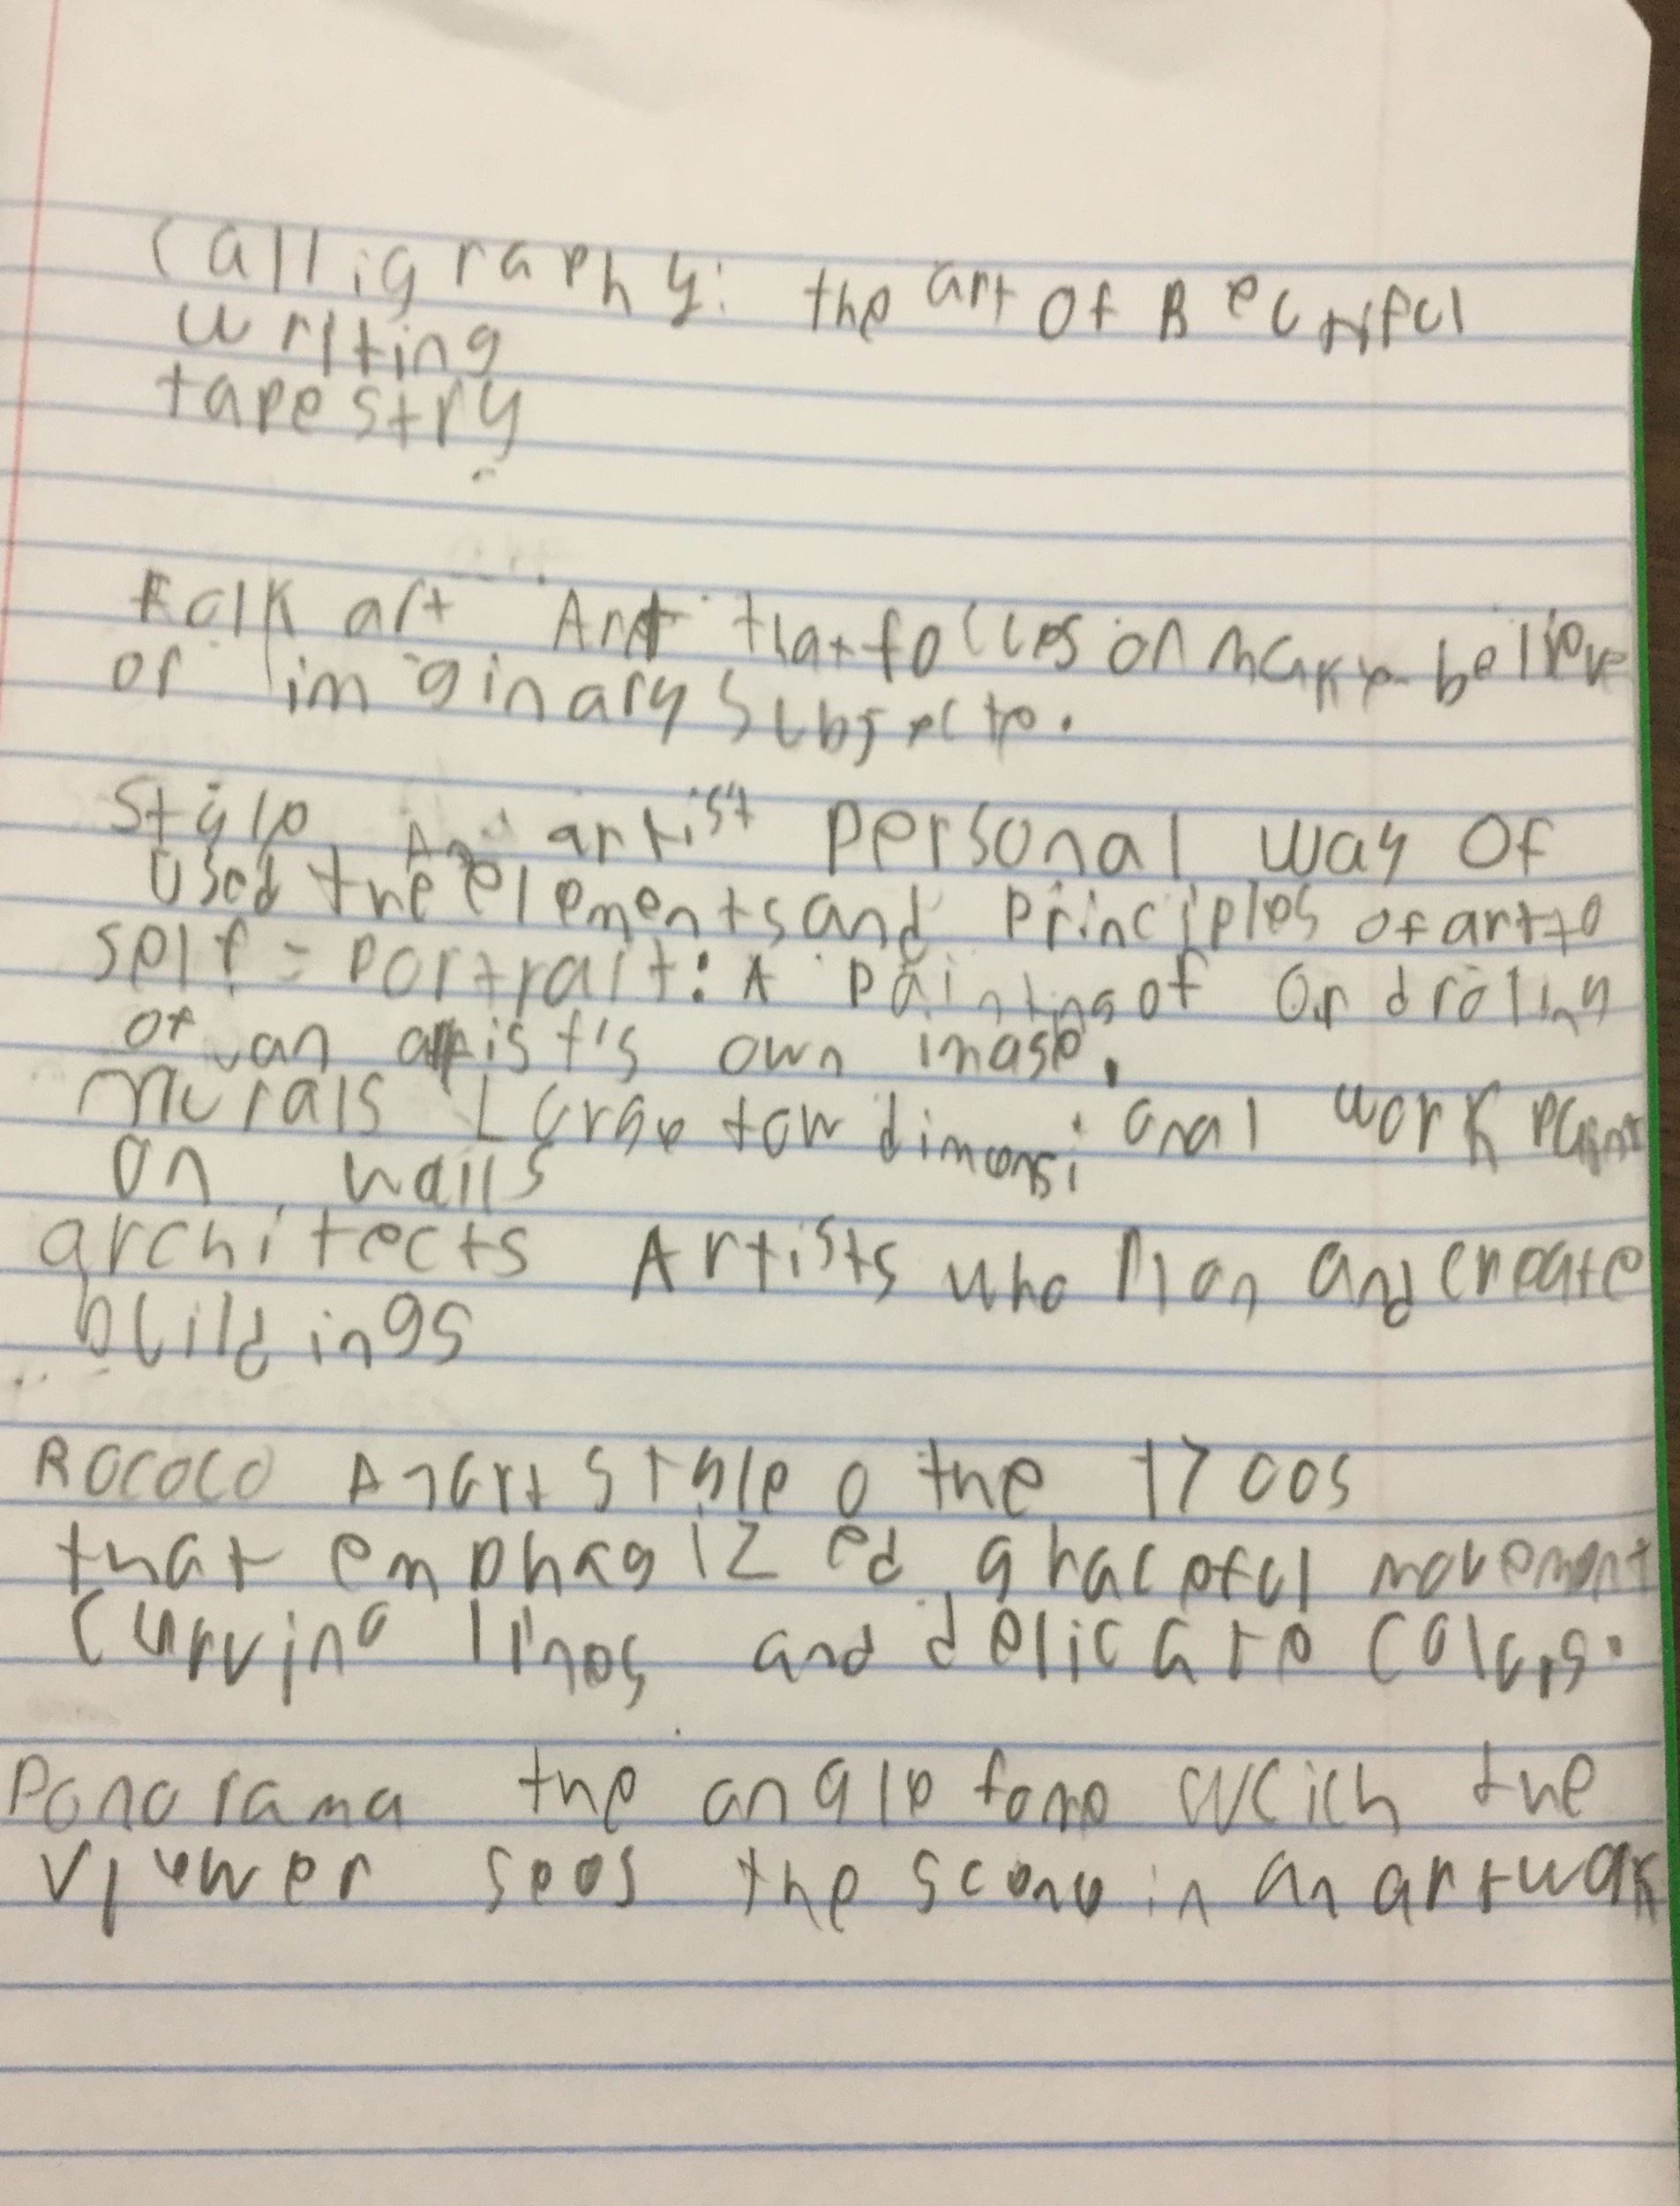 calligraphy: the art of Beutiful
writing
tapestry
Folk art Art that focces on make believe
or imginary subjects.
Style An artist personal way of
used the elements and principles of art to
self = portrait: A painting of or droling
of an artist's own image.
murals Large tow dimensional work paint
on walls
architects Artists who Plan and create
buildings
Rococo An art style o the 1700s
that emphasized graceful movement
curving lines and delicate colors.
Panorama the angle fome which the
viewer sees the scene in an artwork